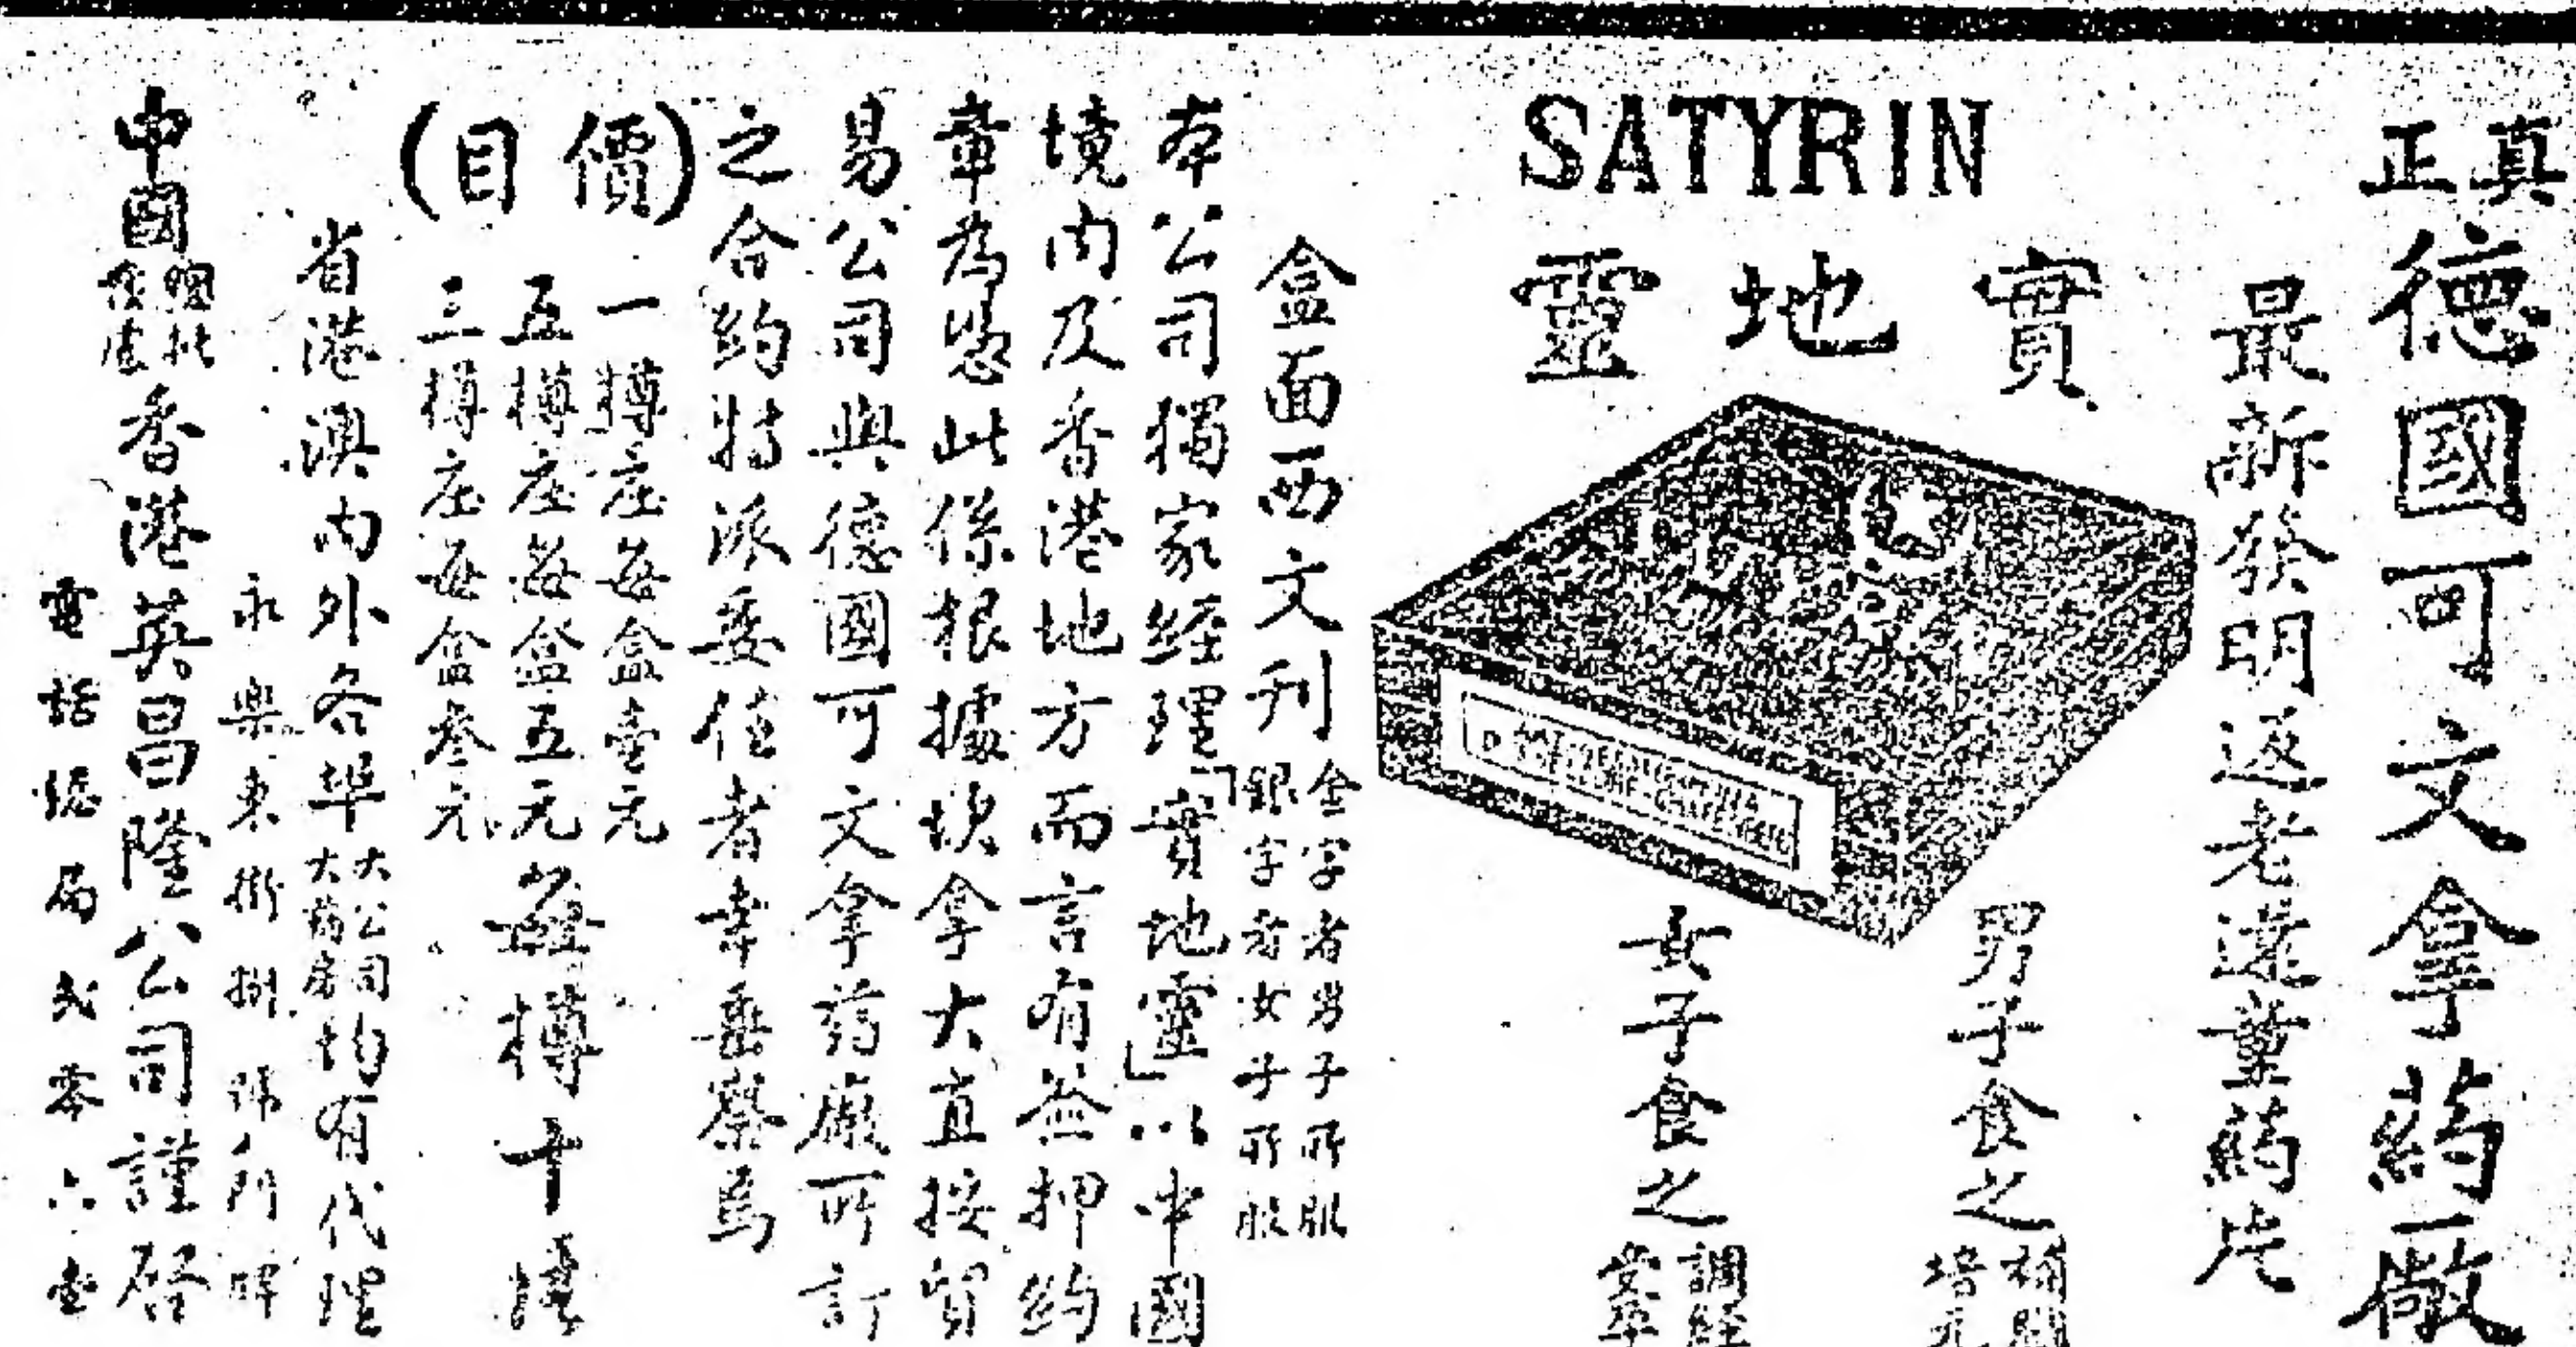 真正
德國可文拿药廠
最新發明返老還童药片
SATYRIN
實地靈
男子食之補腦培元
女子食之調經
盒面西文刊
金字者男子所服
銀字者女子所服
本公司獨家經理「實地靈」以中國
境内及香港地方而言有益押約
章為憑此係根據坎拿大直接貿
易公司與德國可文拿药廠所訂
之合約特派委任者幸垂察焉
(價目)
一樽庄每盒壹元
五樽庄每盒五元
三樽庄每盒叁元
每樽十
省港澳内外各埠
大公司
大药房
均有代理
永樂東街捌號門牌
中國
總批
香港英昌隆公司謹啓
電話總局弍零六壹